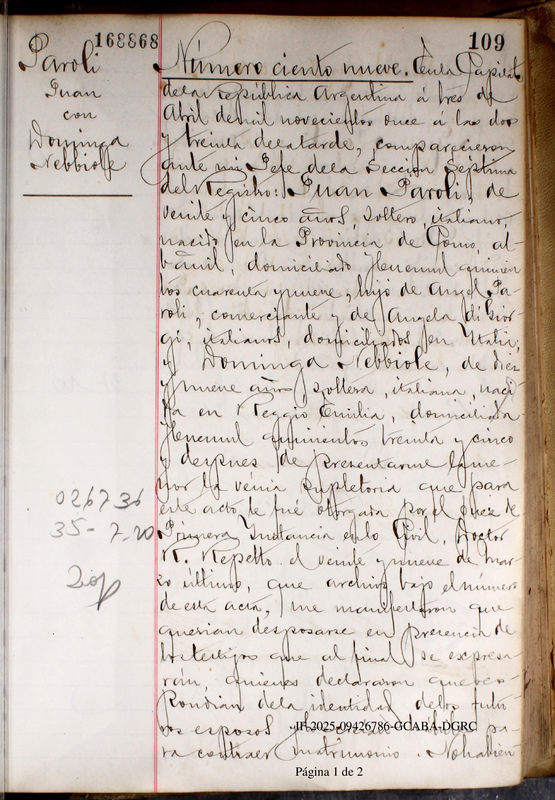 168868
109
Paroli
Juan
con
Dominga
Nebbiole
Número ciento nueve. En la Capital
de la República Argentina á tres de
Abril de mil novecientos once á las dos
y treinta de la tarde, comparecieron
ante mi Jefe de la Sección Séptima
del Registro: Juan Paroli, de
veinte y cinco años, soltero, italiano,
nacido en la Provincia de Como, al-
bañil, domiciliado quinien
tos cuarenta y nueve, hijo de Angel Pa-
roli, comerciante y de Angela di Gior-
gi, italianos, domiciliados en Italia;
y Dominga Nebbiole, de diez
y nueve años, soltera, italiana, naci-
da en Reggio Emilia, domiciliada
quinientos treinta y cinco
y despues de presentarme la me-
nor la venia supletoria que para
este acto le fué otorgada por el Juez de
Primera Instancia en lo Civil, Doctor
R. Repetto el veinte y nueve de mar-
zo último, que archivo bajo el número
de esta acta, me manifestaron que
querian desposarse en presencia de
los testigos que al final se expresa
rán, quienes declararon que res-
pondian de la identidad de los futu
ros esposos pa-
ra contraer matrimonio. No habien-
026736
35-7-20
IF-2025-09426786-GCABA-DGRC
Página 1 de 2